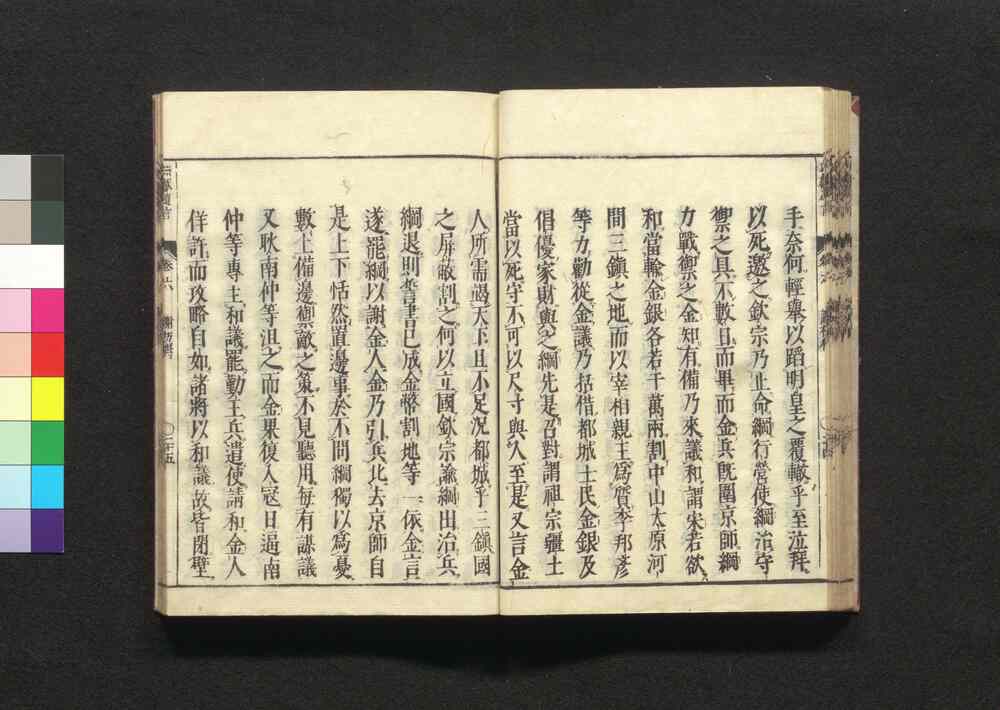 手奈何輕舉以蹈明皇之覆轍乎至泣拜
以死邀之欽宗乃止命綱行營使綱治守
禦之具不數日而畢而金兵既圍京師綱
力戰禦之金知有備乃來議和謂宋若欲
和當輸金銀各若干萬兩割中山太原河
間三鎮之地而以宰相親王為質李邦彥
等力勸從金議乃括借都城士民金銀及
倡優家財與之綱先是召對謂祖宗疆土
當以死守不可以尺寸與人至是又言金
人所需竭天下且不足況都城乎三鎮國
之屏蔽割之何以立國欽宗諭綱出治兵
綱退則誓書已成金幣割地等一依金言
遂罷綱以謝金人金乃引兵北去京師自
是上下恬然置邊事於不問綱獨以為憂
數上備邊禦敵之策不見聽用每有謀議
又耿南仲等沮之而金果復入寇日逼南
仲等專主和議罷勤王兵遣使請和金人
佯許而攻略自如諸將以和議故皆閉壁
卷六
二十五